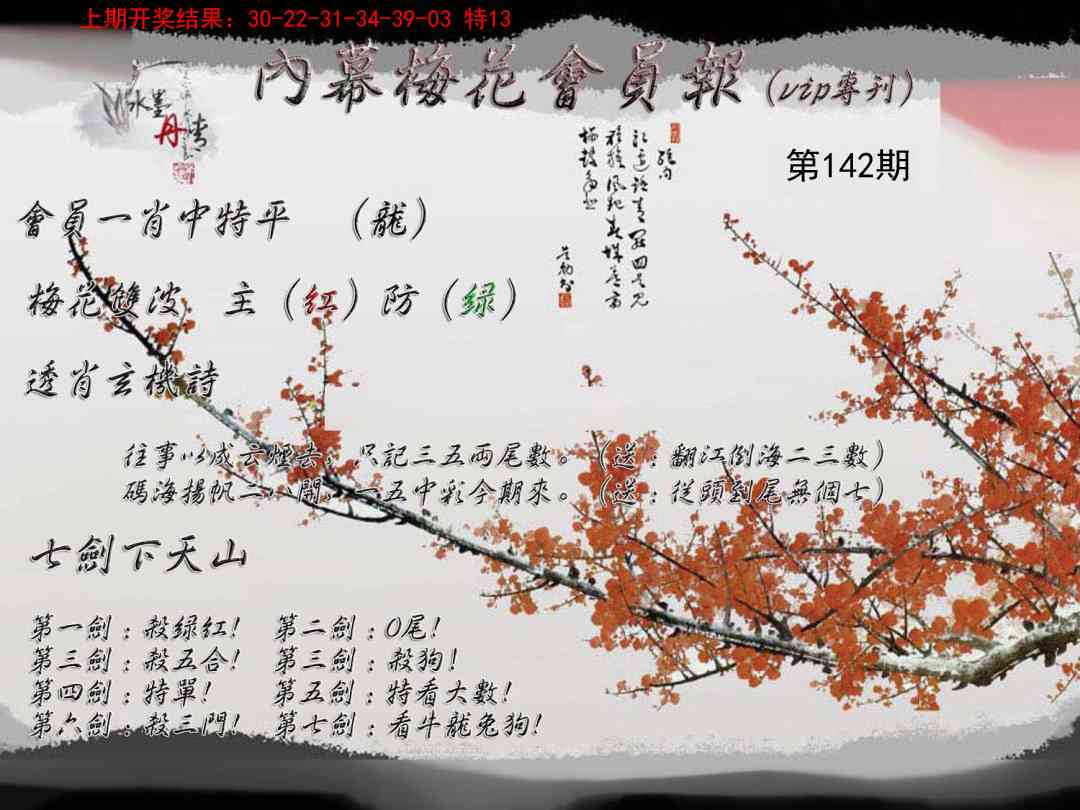 上期开奖结果：30-22-31-34-39-03 特13
內幕梅花會員報(vip專刊)
水墨
丹青
第142期
會員一肖中特平 （龍）
梅花雙波 主（紅）防（緑）
透肖玄機詩
往事以成云煙去，只記三五兩尾數。（送：翻江倒海二三數）
碼海揚帆二八開，一五中彩今期來。（送：從頭到尾無個七）
七劍下天山
第一劍：殺緑紅！ 第二劍：0尾！
第三劍：殺五合！ 第三劍：殺狗！
第四劍：特單！ 第五劍：特看大數！
第六劍：殺三門！ 第七劍：看牛龍兔狗！